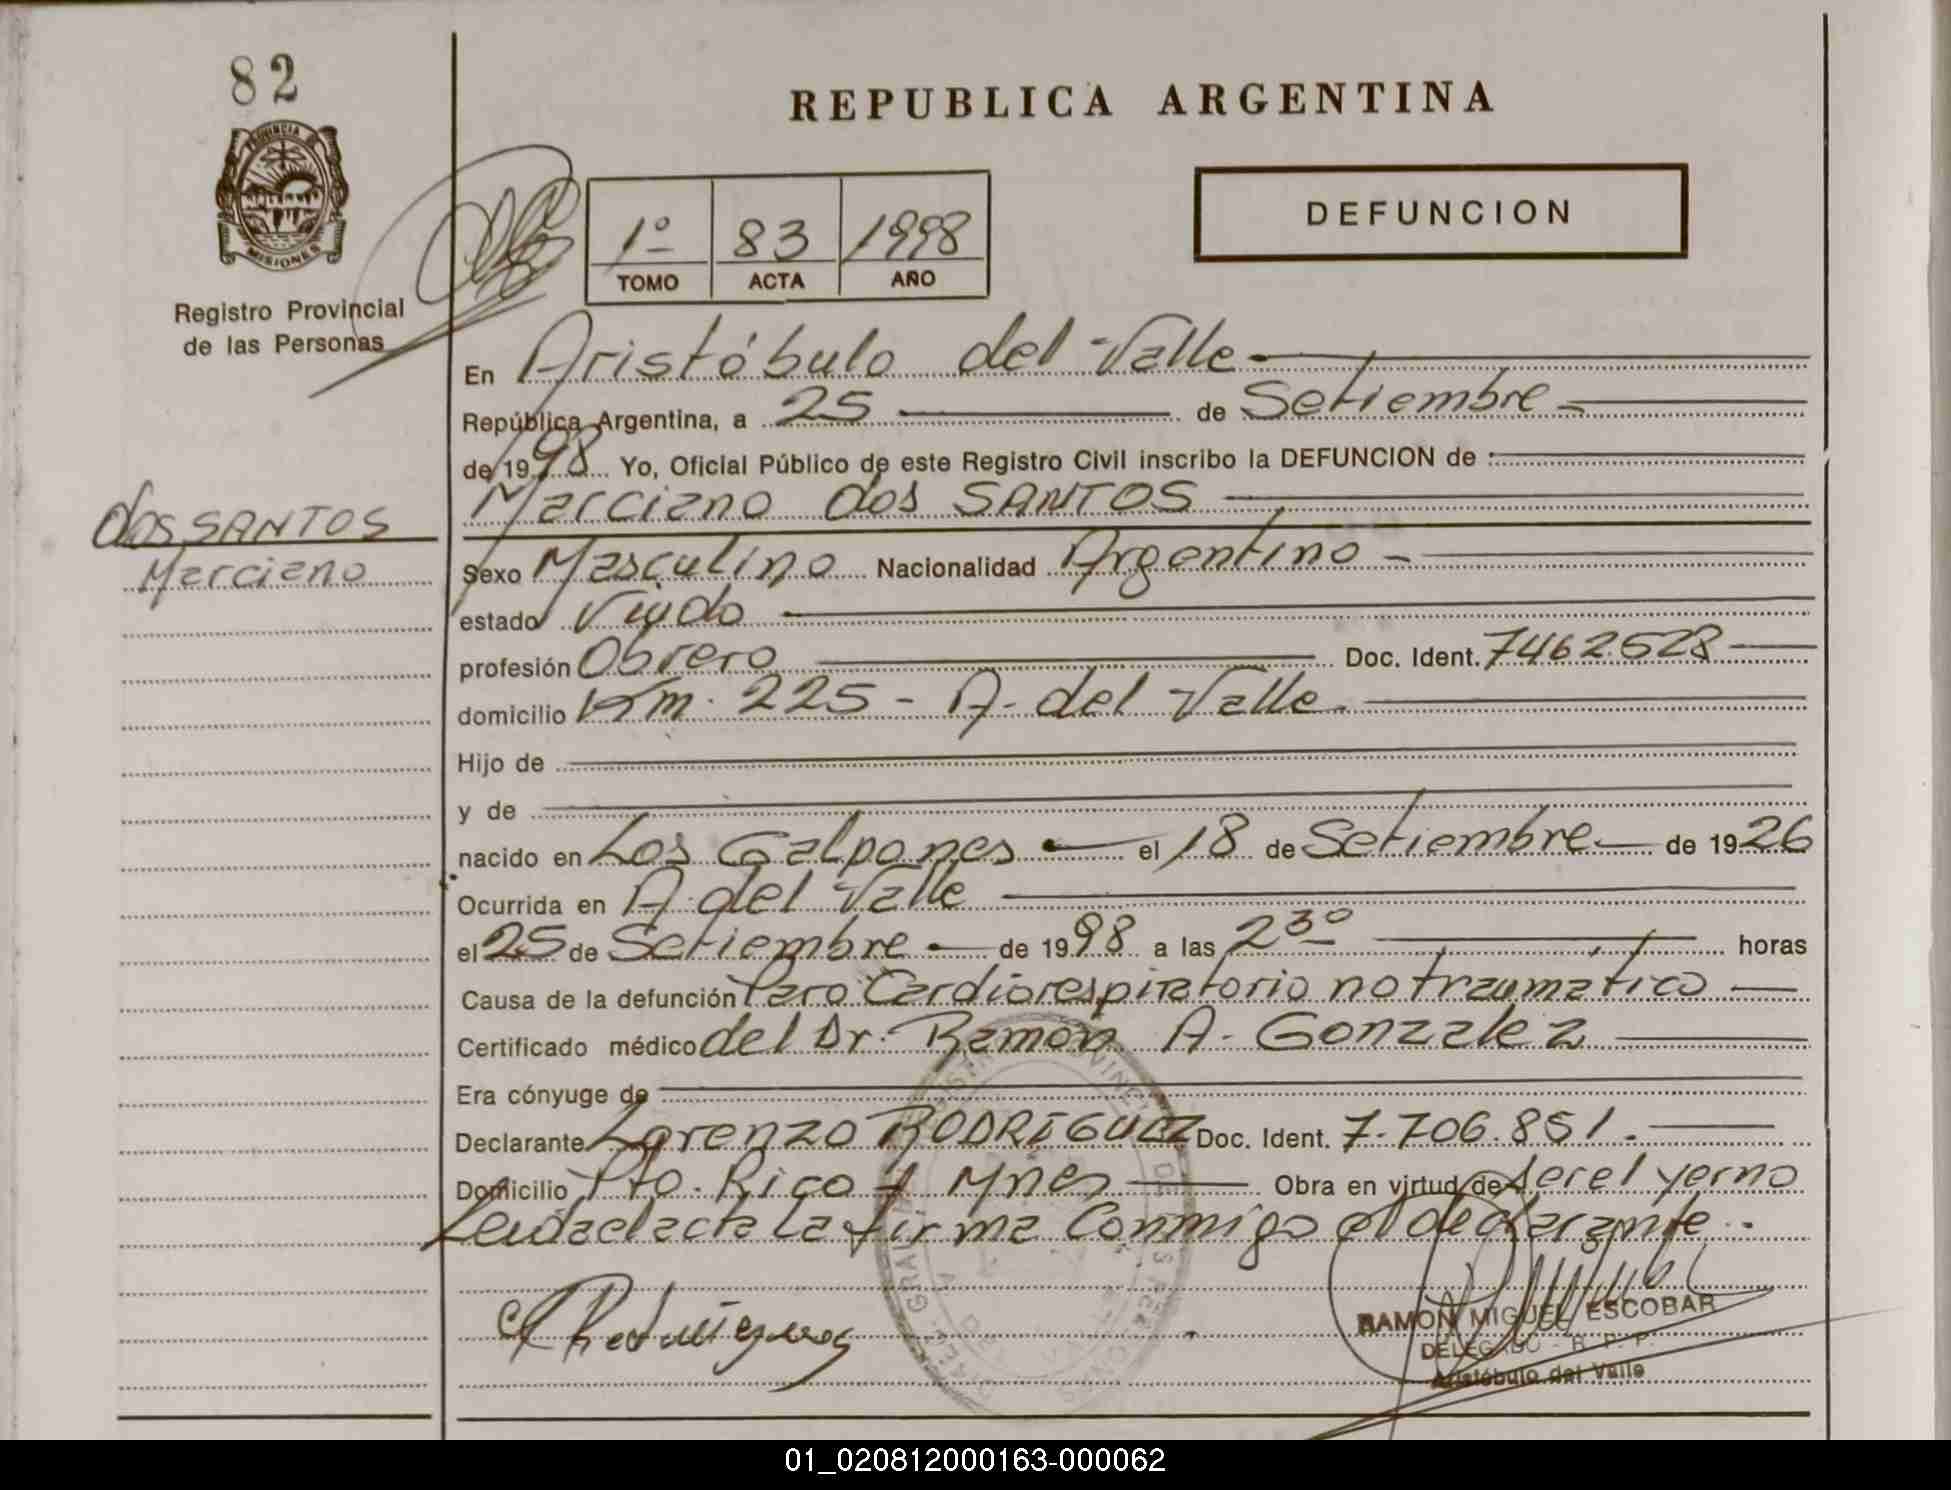 82
PROVINCIA
MISIONES
Registro Provincial
de las Personas
REPUBLICA ARGENTINA
1º 83 1998
TOMO ACTA AÑO
DEFUNCION
En Aristóbulo del Valle
República Argentina, a 25 de Setiembre
de 1998 Yo, Oficial Público de este Registro Civil inscribo la DEFUNCION de :
Marciano dos SANTOS
dos SANTOS
Marciano
Sexo Masculino Nacionalidad Argentino
estado Viudo
profesión Obrero Doc. Ident. 7462528
domicilio Km. 225 - A. del Valle.
Hijo de
y de
nacido en Los Galpones el 18 de Setiembre de 1926
Ocurrida en A. del Valle
el 25 de Setiembre de 1998 a las 2 30 horas
Causa de la defunción Paro Cardiorespiratorio no traumático
Certificado médico del Dr. Ramón A. Gonzalez
Era cónyuge de
Declarante Lorenzo RODRIGUEZ Doc. Ident. 7.706.851.
Domicilio Pto. Rico - Mnes Obra en virtud de ser el yerno
Leida el acta la firma Conmigo el declarante.
RAMON MIGUEL ESCOBAR
DELEGADO - R. P. P.
Aristóbulo del Valle
01_020812000163-000062